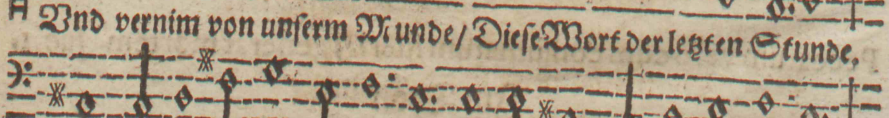 Vnd vernim von unſerm Munde/ Dieſe Wort der letzten Stunde.